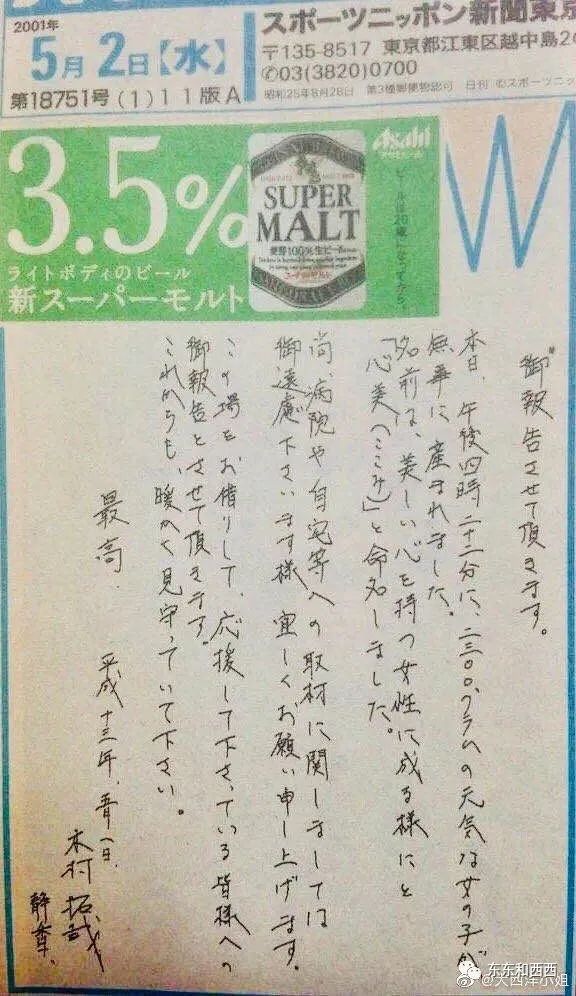 2001年
5月2日【水】
第18751号 (1) 11版A
スポーツニッポン新聞東京
〒135-8517 東京都江東区越中島2
✆03(3820)0700
昭和25年8月28日 第3種郵便物認可 日刊 ©スポーツニッ
3.5%
ライトボディのビール
新スーパーモルト
SUPER
MALT
麦芽100%生ビール
Asahi
アサヒビール
ビールは20歳になってから。
W
御報告させて頂きます。
本日、午後四時二十二分に、二三〇〇グラムの元気な女の子が
無事に産まれました。
名前は、美しい心を持つ女性に成る様にと
「心美(ここみ)」と命名しました。
尚、病院や自宅等への取材に関しましては
御遠慮下さいます様、宜しくお願い申し上げます。
この場をお借りして、応援して下さっている皆様への
御報告とさせて頂きます。
これからも、暖かく見守っていて下さい。
最高.
平成十三年、五月一日.
木村拓哉
静香.
东东和西西
@大西洋小姐